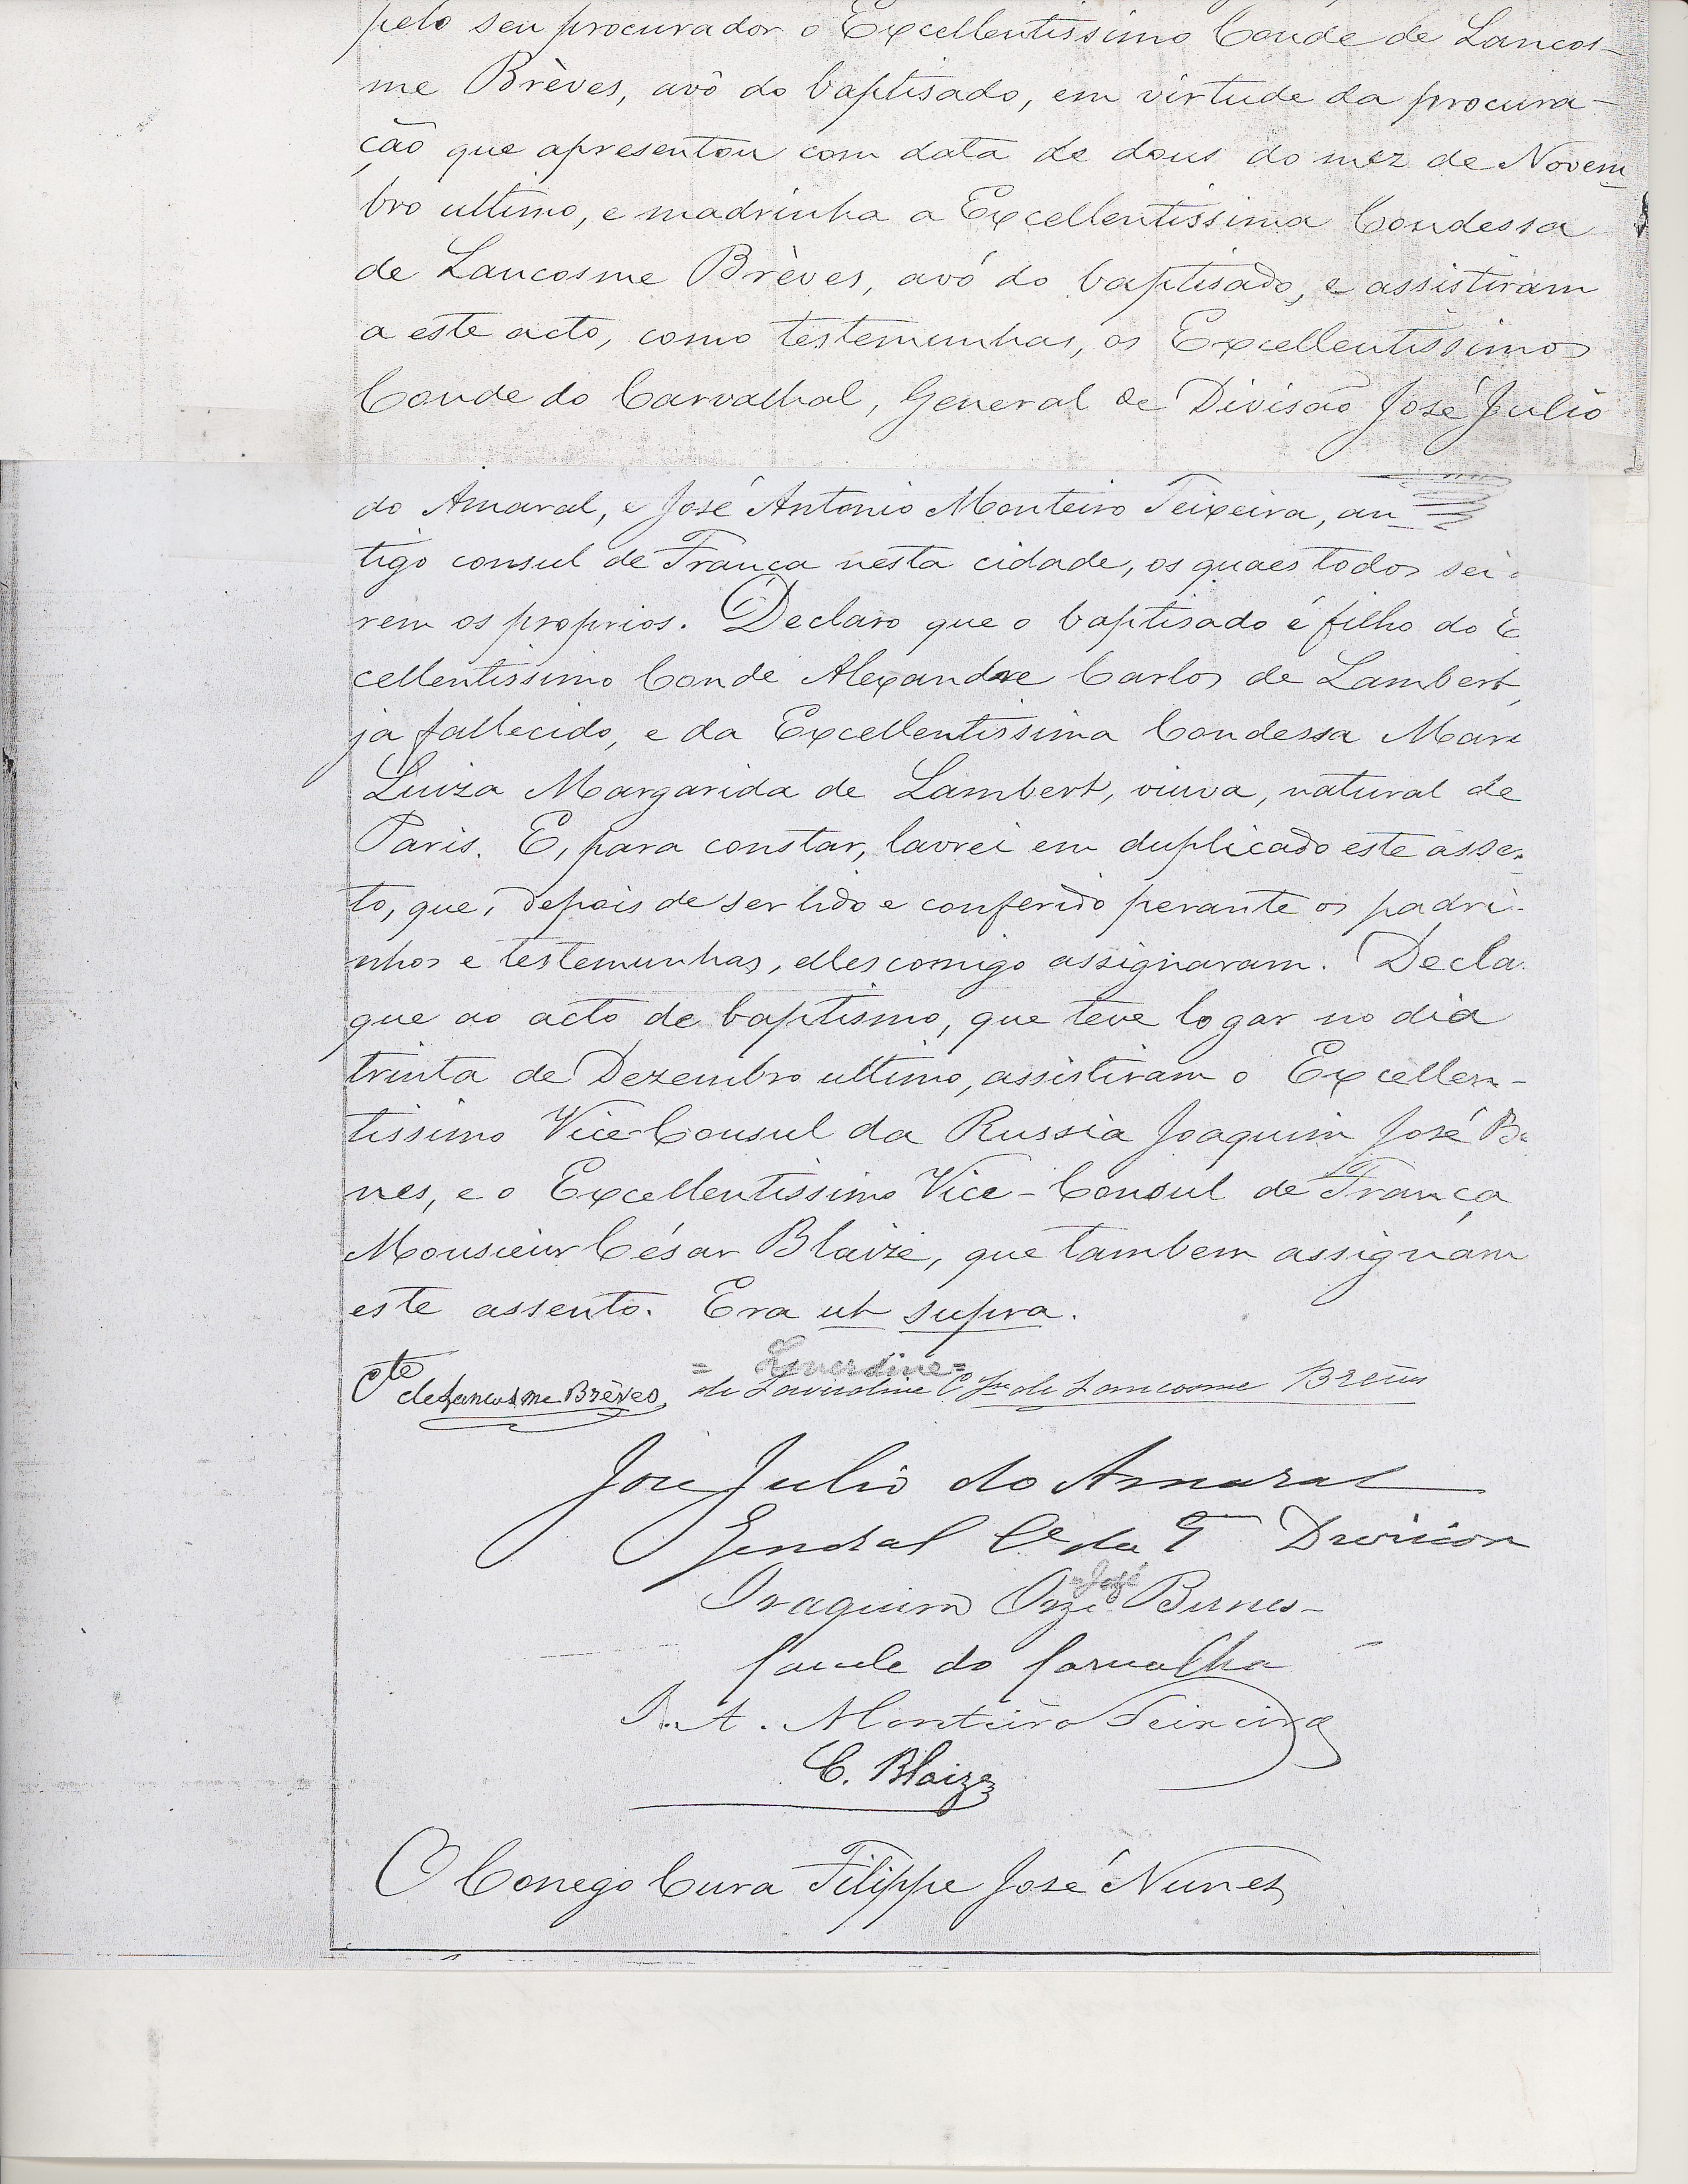 pelo seu procurador o Excellentissimo Conde de Lancos-
me Brèves, avô do baptisado, em virtude da procura-
ção que apresentou com data de dous do mez de Novem
bro ultimo, e madrinha a Excellentissima Condessa
de Lancosme Brèves, avó do baptisado, e assistiram
a este acto, como testemunhas, os Excellentissimos
Conde do Carvalhal, General de Divisão José Julio
do Amaral, e José Antonio Monteiro Teixeira, an
tigo consul de França nesta cidade, os quaes todos sei
rem os proprios. Declaro que o baptisado é filho do E
cellentissimo Conde Alexandre Carlos de Lambert,
ja fallecido, e da Excellentissima Condessa Mari
Luiza Margarida de Lambert, viuva, natural de
Paris. E, para constar, lavrei em duplicado este asse
to, que, depois de ser lido e conferido perante os padri-
nhos e testemunhas, elles comigo assignaram. Decla
que ao acto de baptismo, que teve logar no dia
trinta de Dezembro ultimo, assistiram o Excellen-
tissimo Vice-Consul da Russia Joaquim José B
nes, e o Excellentissimo Vice-Consul de França
Monsieur César Blaize, que tambem assignam
este assento. Era ut supra.
= Laverdine =
Cte de Lancosme Brèves, de Laverdine Ctsse de Lancosme Brèves
José Julio do Amaral
General Ce da Division
= José
Joaquim José Burnes
Conde do Carvalhal
J. A. Monteiro Teixeira
C. Blaize
O Conego Cura Filippe José Nunes